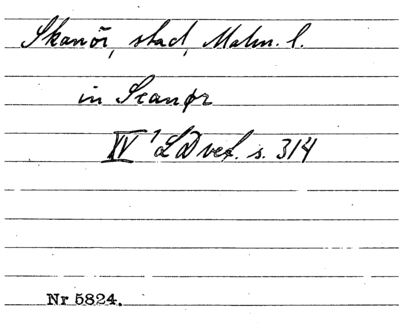 Skanör, stad, Malm. l.
in Scanør
XV¹ LDvet. s. 314
Nr 5824.